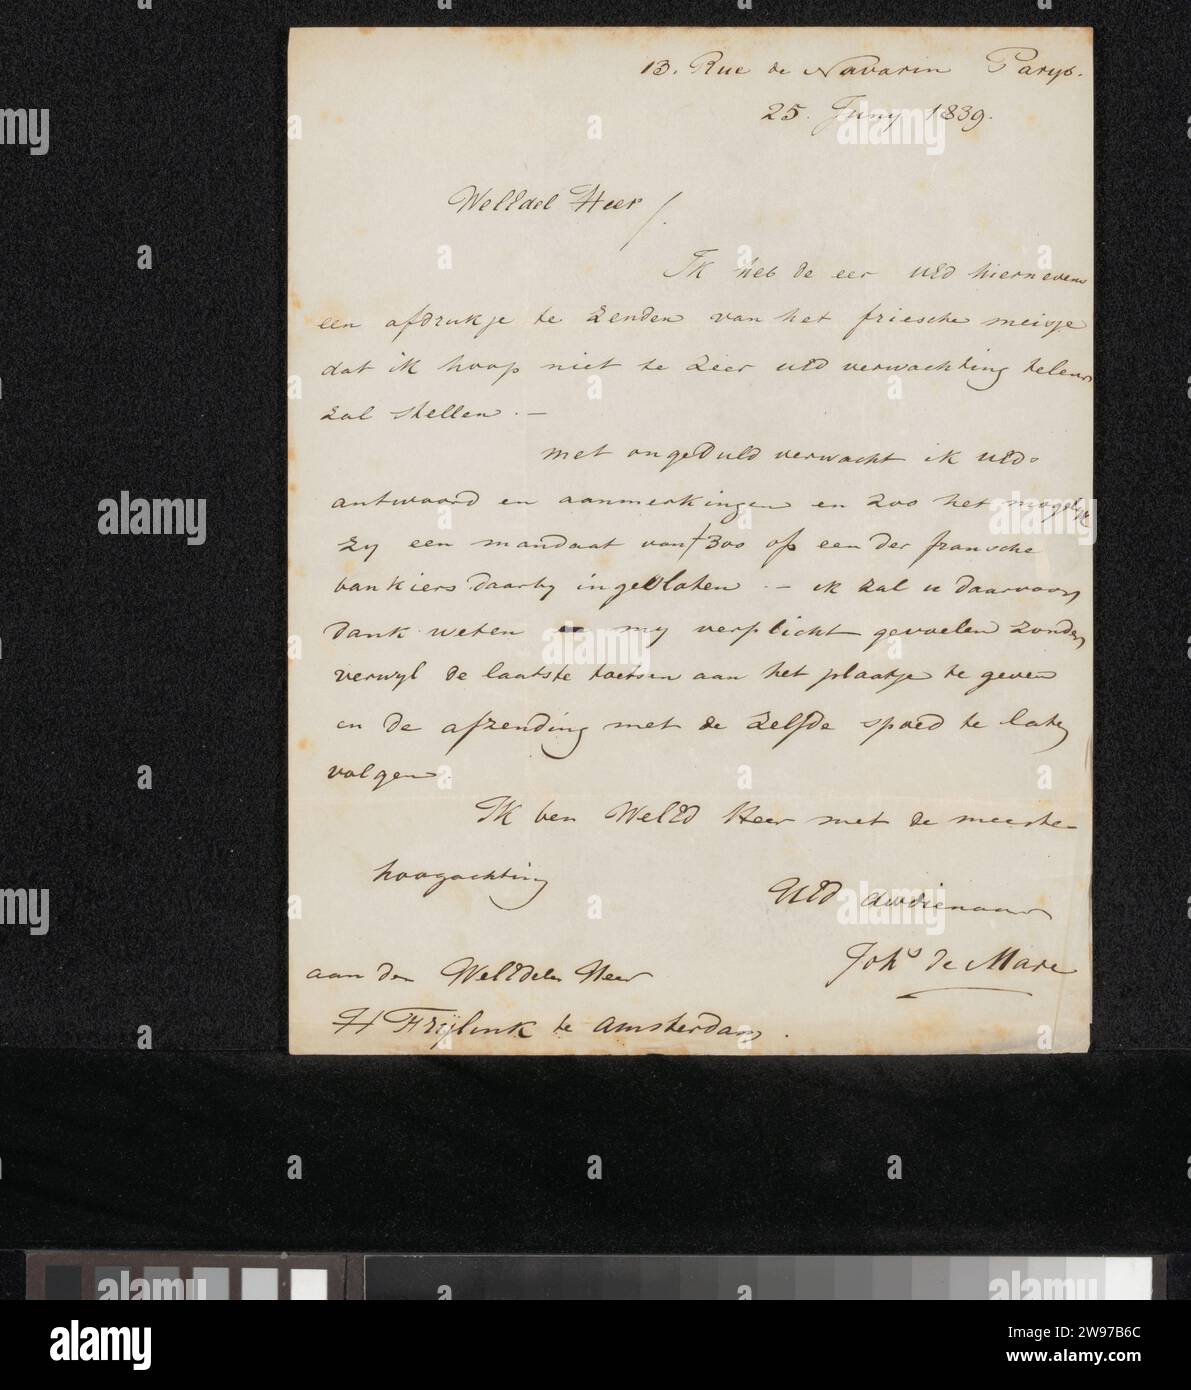 13. Rue de Navarin Parys.
25. Juny 1839.
WelEdel Heer /.
Ik heb de eer UEd hiernevens
een afdrukje te zenden van het friesche meisje
dat ik hoop niet te zeer UEd verwachting teleur
zal stellen. —
met ongeduld verwacht ik UEd.
antwoord en aanmerkingen en zoo het mogelyk
zy een mandaat van f300 op een der fransche
bankiers daarby ingesloten — ik zal u daarvoor
dank weten my verplicht gevoelen zonder
verwyl de laatste toetsen aan het plaatje te geven
en de afzending met de zelfde spoed te laten
volgen.
Ik ben WelEd Heer met de meeste
hoogachting
UEd dwdienaar
Johs de Mare
aan den WelEdelen Heer
H Frijlink te Amsterdam.
alamy
Image ID: 2W97B6C
www.alamy.com